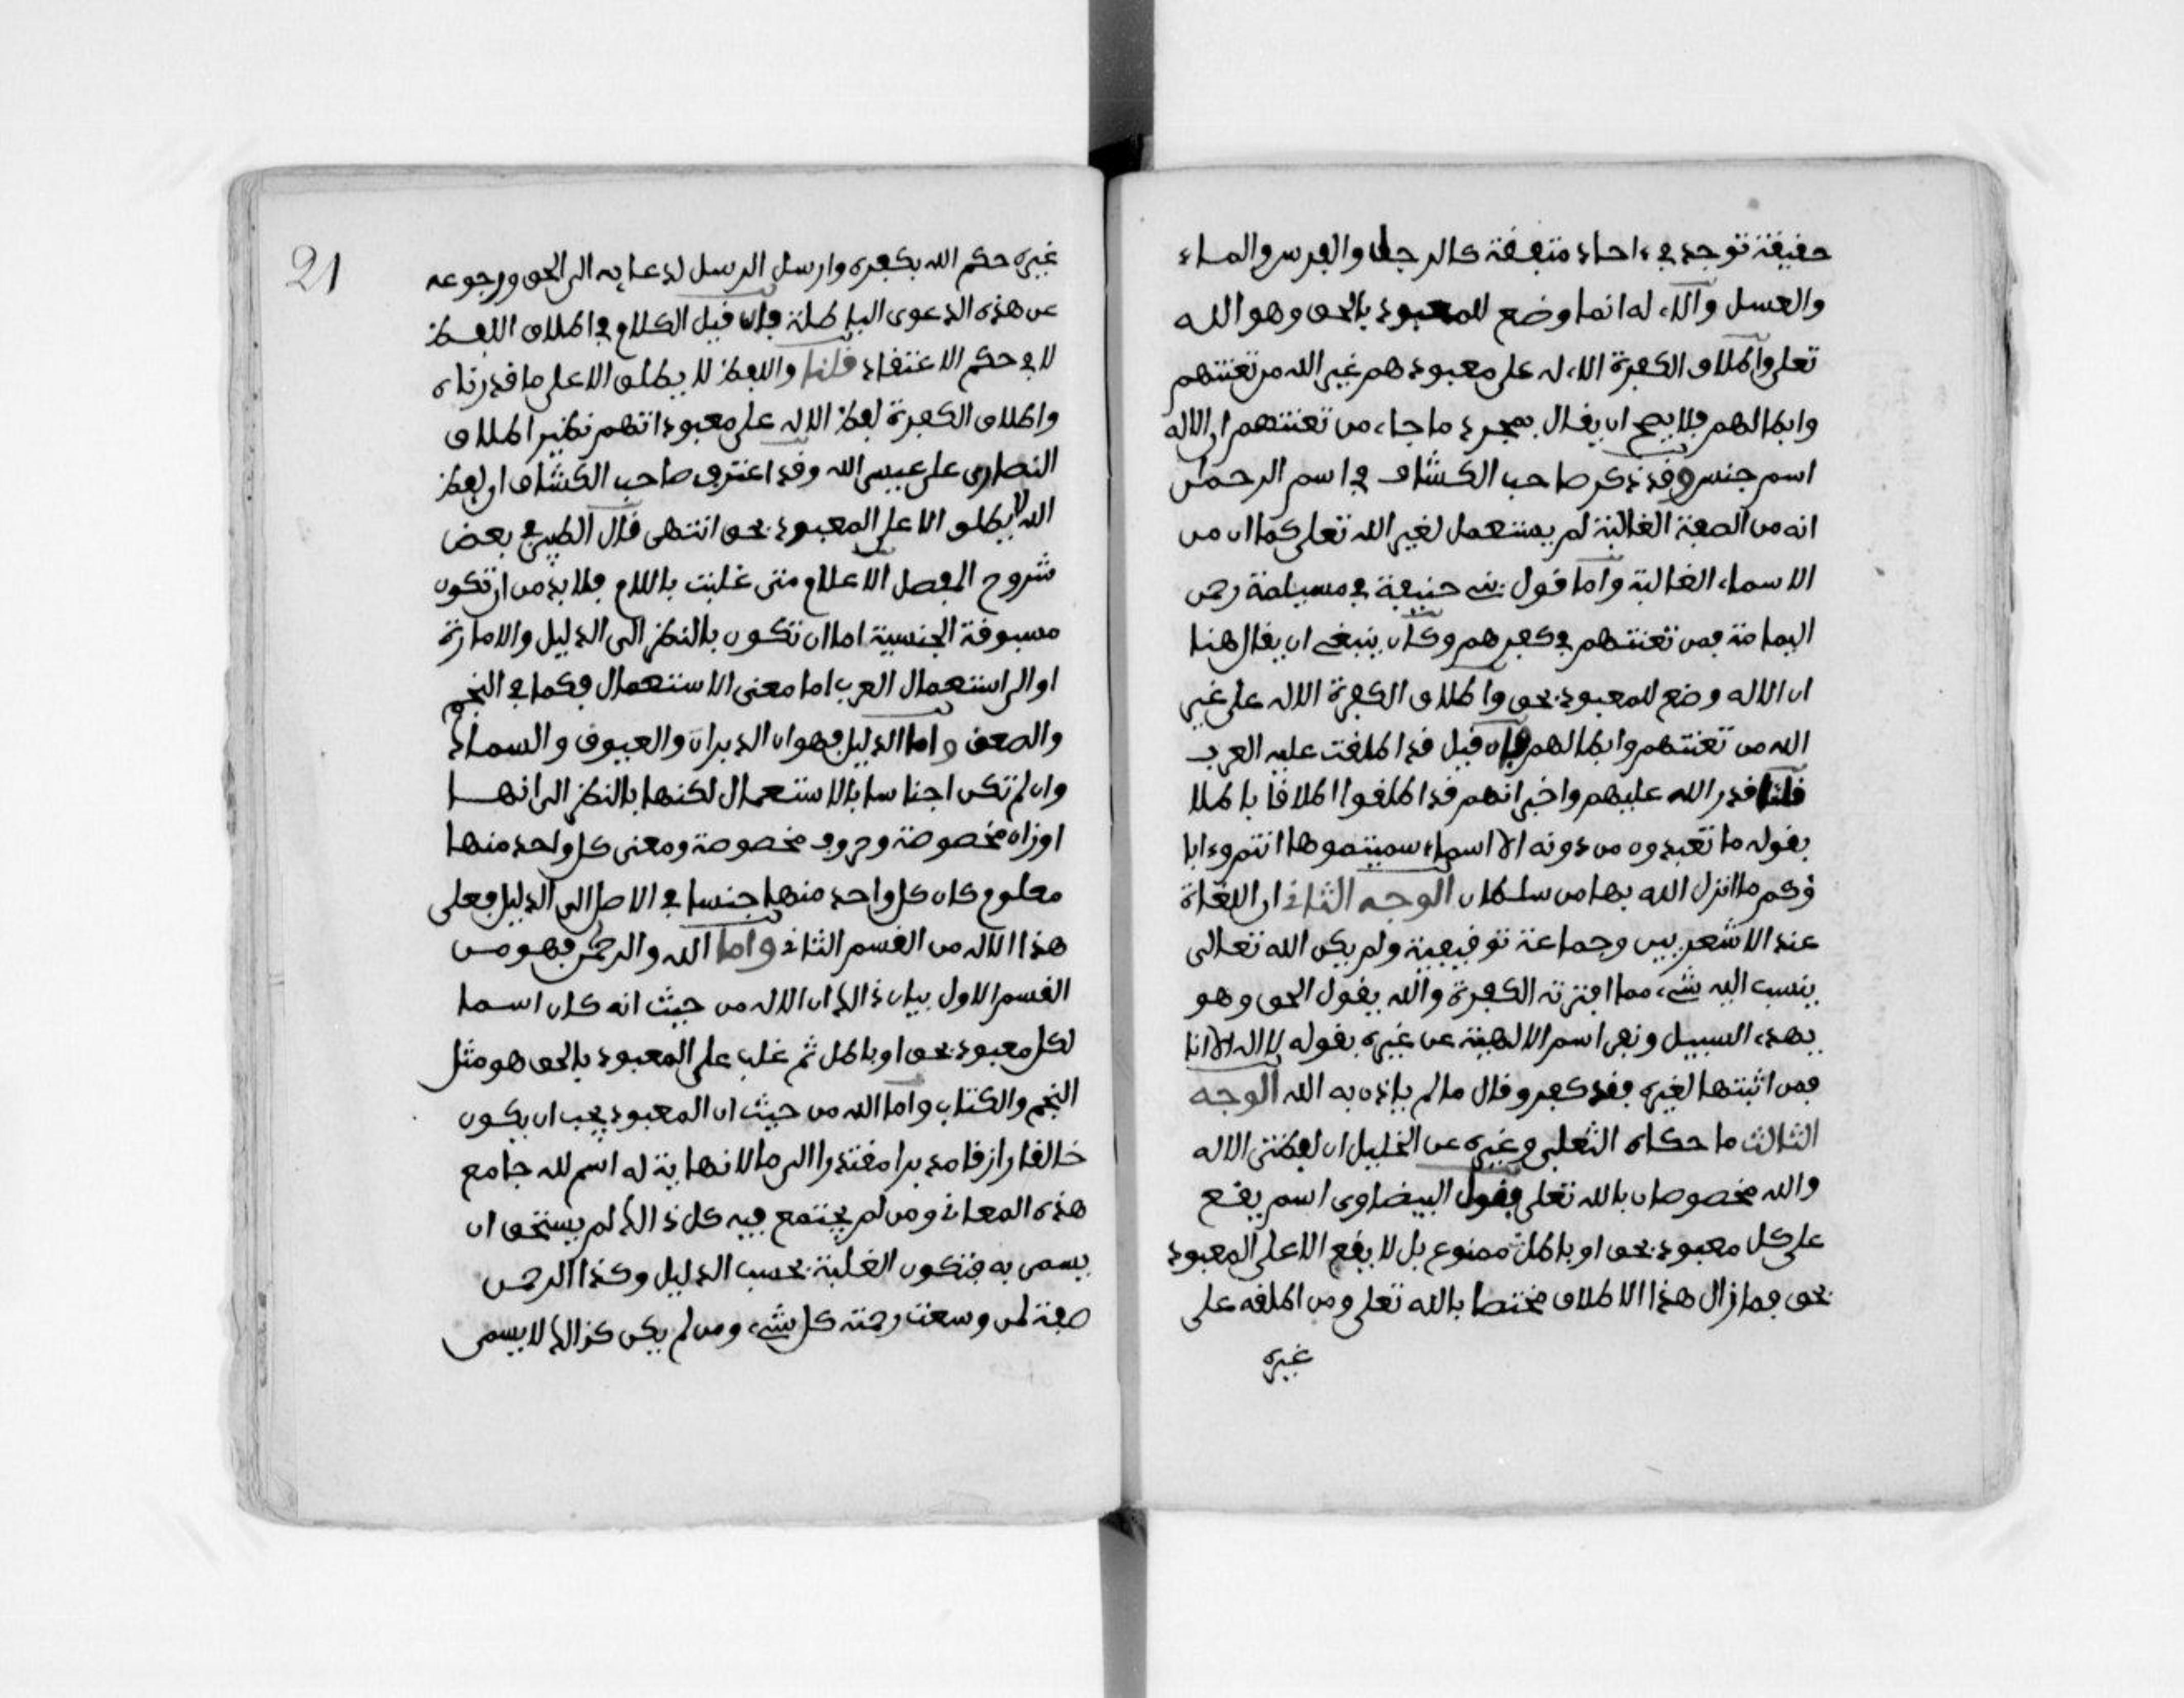 حقيقة توجد في ءاحاد متفقة كالرجل والفرس والماء
والعسل والاله انما وضع للمعبود بالحق وهو الله
تعلى واطلاق الكفرة الاله على معبودهم غير الله من تعنتهم
وابطالهم فلا يصح ان يقال بمجرد ما جاء من تعنتهم ان الاله
اسم جنس وقد ذكر صاحب الكشاف في اسم الرحمن
انه من الصفة الغالبة لم يستعمل لغير الله تعلى كما ان من
الاسماء الغالبة واما قول بني حنيفة في مسيلمة رحمن
اليمامة فمن تعنتهم في كفرهم وكان ينبغي ان يقال هنا
ان الاله وضع للمعبود بحق واطلاق الكفرة الاله على غير
الله من تعنتهم وابطالهم فان قيل قد اطلقت عليه العرب
قلنا قد رد الله عليهم واخبر انهم قد اطلقوا اطلاقا باطلا
بقوله ما تعبدون من دونه الا اسماء سميتموها انتم وءابا
ؤكم ما انزل الله بها من سلطان الوجه الثاني ان اللغاة
عند الاشعريين وجماعة توقيفية ولم يكن الله تعالى
ينسب اليه شيء مما افترته الكفرة والله يقول الحق وهو
يهدي السبيل ونفى اسم الالهية عن غيره بقوله لا اله الا انا
فمن اثبتها لغيره فقد كفر وقال ما لم ياذن به الله الوجه
الثالث ما حكاه الثعلبي وغيره عن الخليل ان لفظتى الاله
والله مخصوصان بالله تعلى فقول البيضاوى اسم يقع
على كل معبود بحق او باطل ممنوع بل لا يقع الا على المعبود
بحق فما زال هذا الاطلاق مختصا بالله تعلى ومن اطلقه على
غيره
21
غيره حكم الله بكفره وارسل الرسل لدعايه الى الحق ورجوعه
عن هذه الدعوى الباطلة فان قيل الكلام في اطلاق اللفظ
لا في حكم الاعتقاد قلنا واللفظ لا يطلق الا على ما قدرناه
واطلاق الكفرة لفظ الاله على معبوداتهم نظير اطلاق
النصارى على عيسى الله وقد اعترف صاحب الكشاف ان لفظ
الله لا يطلق الا على المعبود بحق انتهى قال الطيبي في بعض
شروح المفصل الاعلام متى غلبت باللام فلا بد من ان تكون
مسبوقة الجنسية اما ان تكون بالنظر الى الدليل والامارة
او الى استعمال العرب اما معنى الاستعمال فكما في النجم
والصعق واما الدليل فهو ان الدبران والعيوق والسماك
وان لم تكن اجناسا بالاستعمال لكنها بالنظر الى انها
اوزان مخصوصة وحروف مخصوصة ومعنى كل واحد منها
معلوم كان كل واحد منها جنسا في الاصل الى الدليل فعلى
هذا الاله من القسم الثاني واما الله والرحمن فهو من
القسم الاول بيان ذالك ان الاله من حيث انه كان اسما
لكل معبود بحق او باطل ثم غلب على المعبود بالحق هو مثل
النجم والكتاب واما الله من حيث ان المعبود يجب ان يكون
خالقا رازقا مدبرا مقتدرا الى ما لا نهاية له اسم لله جامع
هذه المعاني ومن لم يجتمع فيه كل ذالك لم يستحق ان
يسمى به فتكون الغلبة بحسب الدليل وكذا الرحمن
صفة لمن وسعت رحمته كل شيء ومن لم يكن كذالك لا يسمى